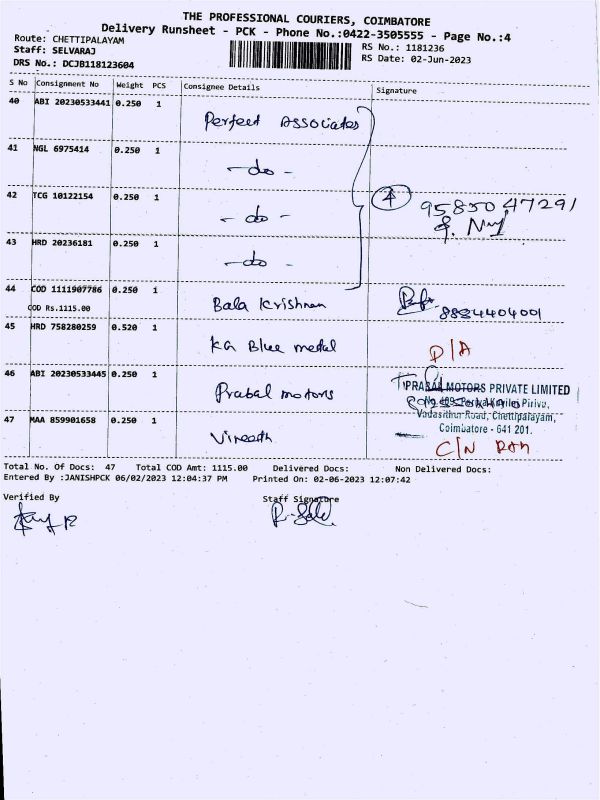 THE PROFESSIONAL COURIERS, COIMBATORE
Delivery Runsheet - PCK - Phone No.:0422-3505555 - Page No.:4
Route: CHETTIPALAYAM
Staff: SELVARAJ
DRS No.: DCJB118123604
RS No.: 1181236
RS Date: 02-Jun-2023
S No Consignment No Weight PCS Consignee Details Signature
40 ABI 20230533441 0.250 1 Perfect Associates
41 NGL 6975414 0.250 1 -do-
42 TCG 10122154 0.250 1 -do- 4 9585047291
43 HRD 20236181 0.250 1 -do-
44 COD 1111907786 0.250 1 Bala Krishnan
COD Rs.1115.00 8884404001
45 HRD 758280259 0.520 1 KG Blue metal D/A
46 ABI 20230533445 0.250 1 Prabal motors
PRABAL MOTORS PRIVATE LIMITED
Pirivu,
Road, Chettipalayam,
Coimbatore - 641 201.
47 MAA 859901658 0.250 1 C/N
Total No. Of Docs: 47 Total COD Amt: 1115.00 Delivered Docs: Non Delivered Docs:
Entered By :JANISHPCK 06/02/2023 12:04:37 PM Printed On: 02-06-2023 12:07:42
Verified By Staff Signature